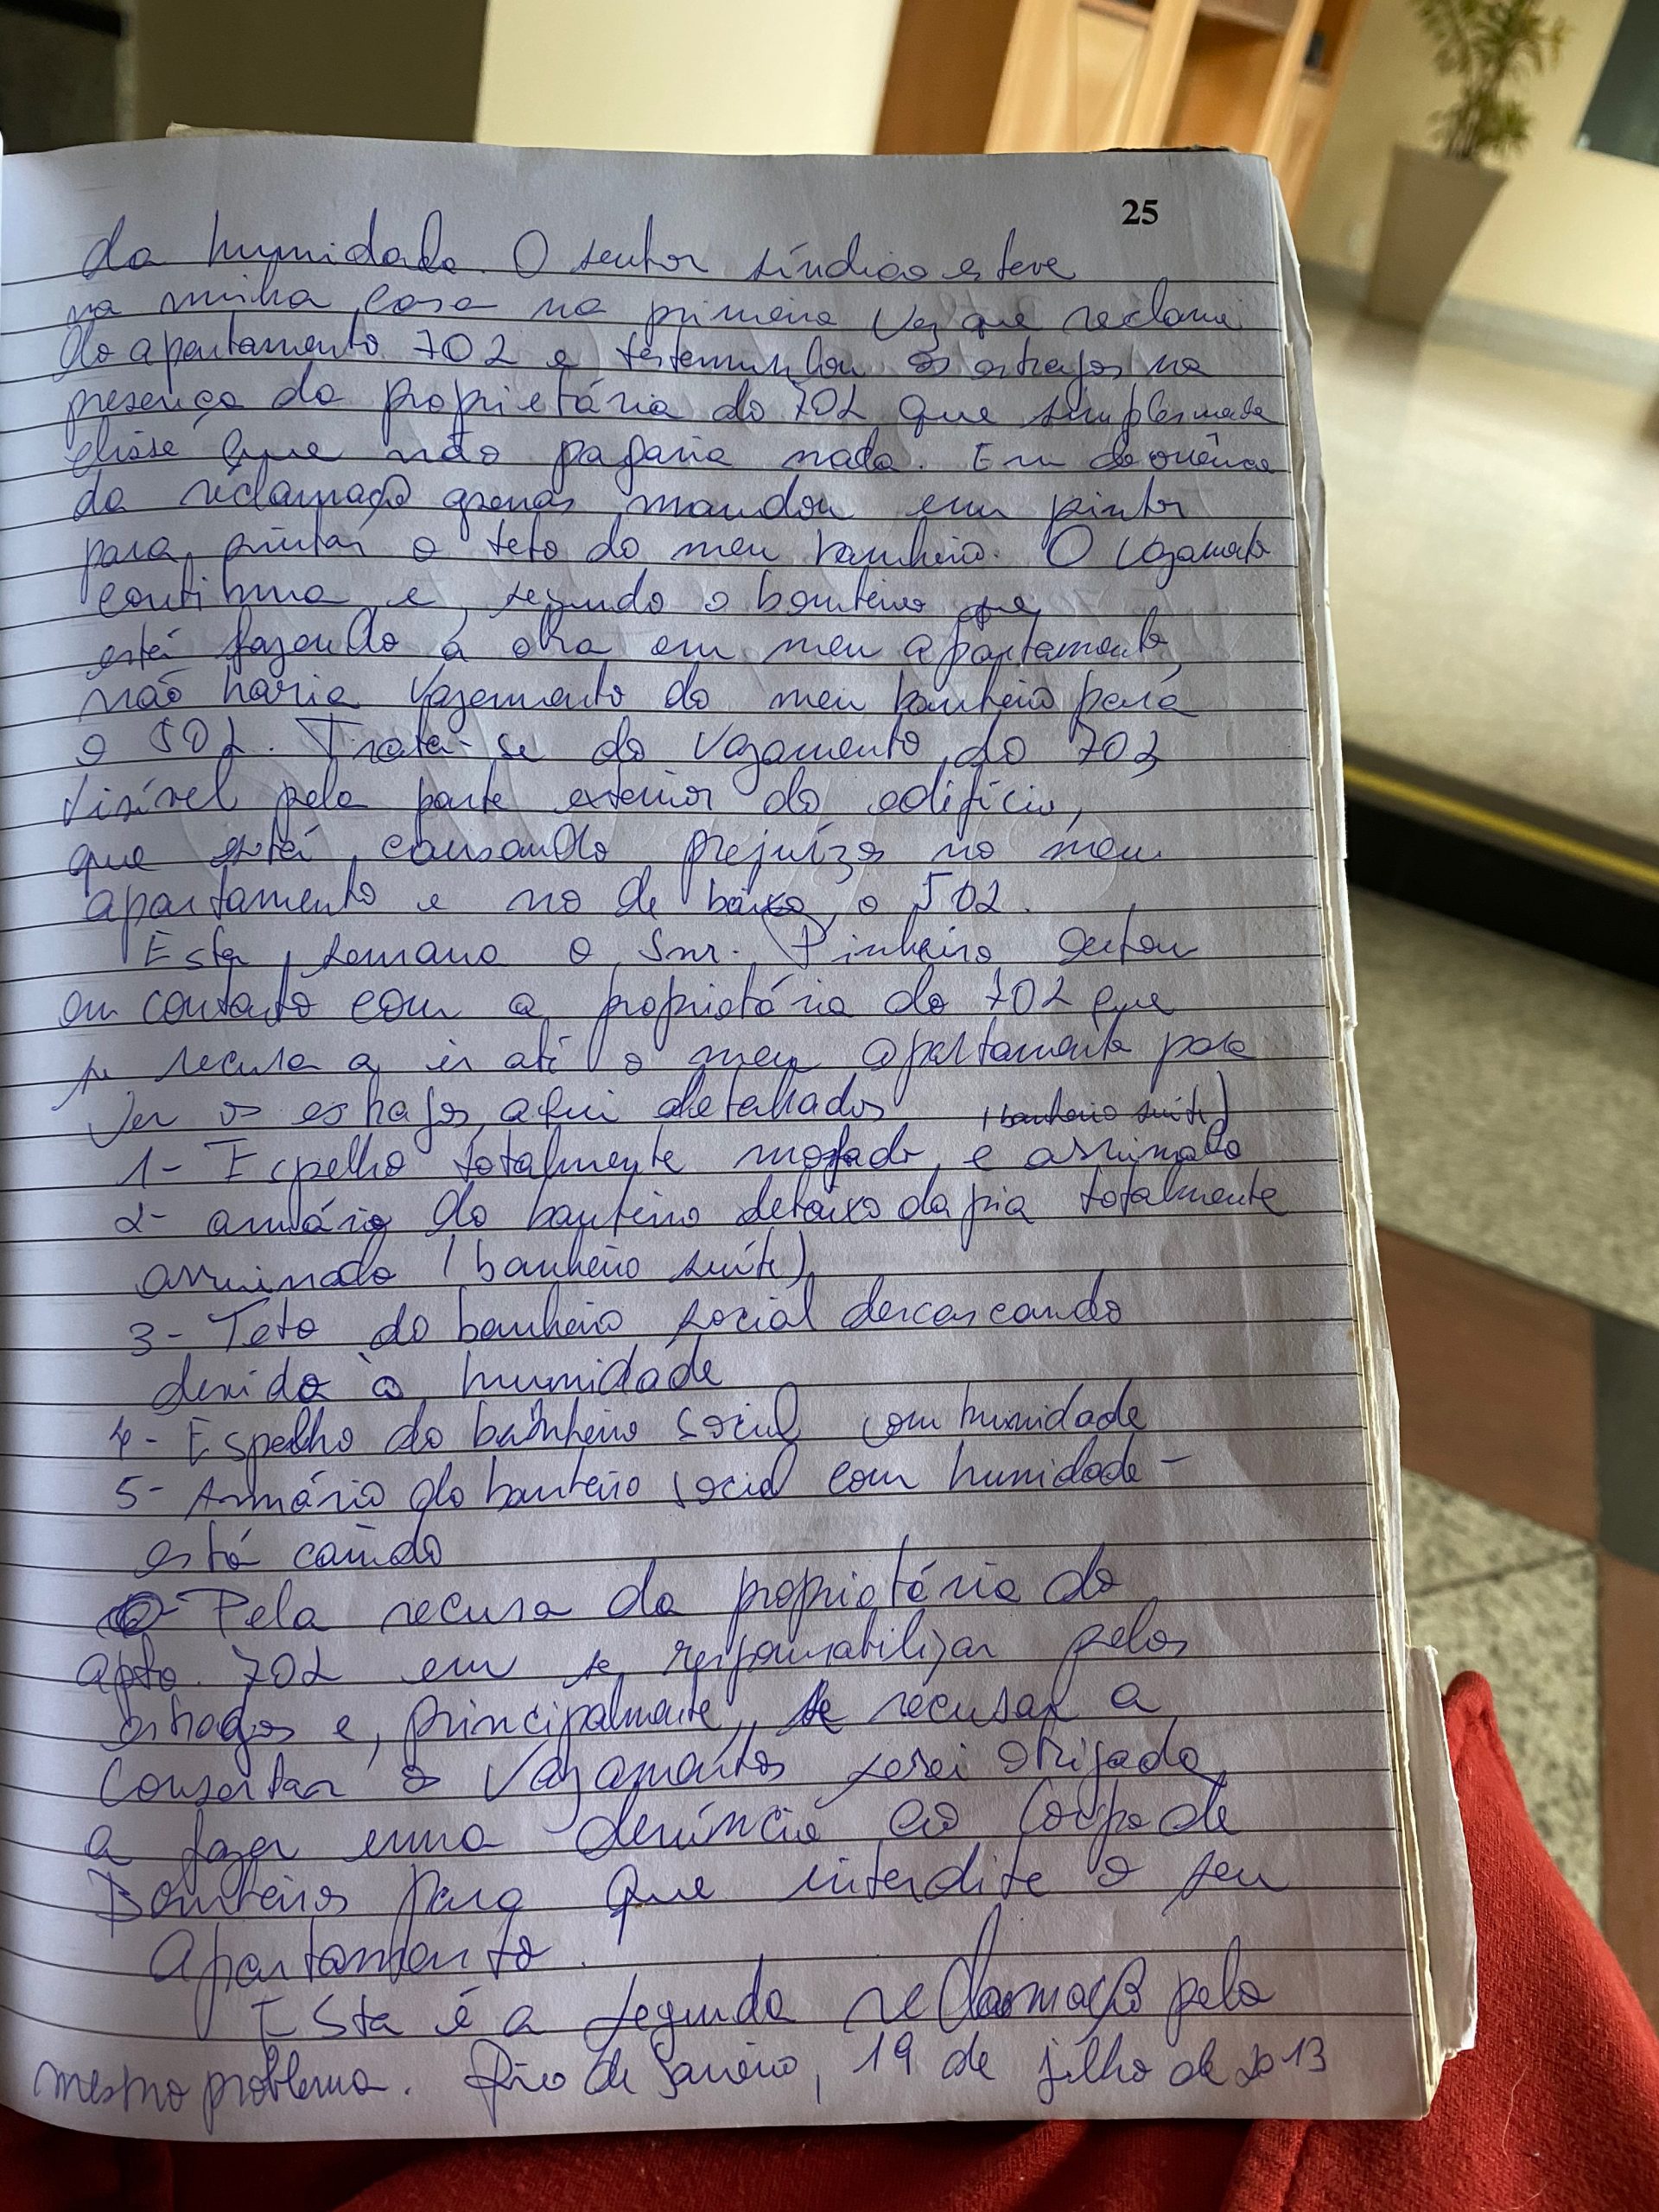 25
da humidade. O senhor síndico esteve
na minha casa na primeira vez que reclamei
do apartamento 702 e testemunhou os estragos na
presença da proprietária do 702 que simplesmente
disse que não pagaria nada. Em decorrência
da reclamação apenas mandou um pintor
para pintar o teto do meu banheiro. O vazamento
continua e, segundo o bombeiro que
está fazendo a obra em meu apartamento,
não havia vazamento do meu banheiro para
o 502. Trata-se do vazamento do 702
visível pela parte exterior do edifício,
que está causando prejuízos no meu
apartamento e no de baixo, o 502.
Esta semana o Snr. Pinheiro entrou
em contato com a proprietária do 702 que
se recusa a ir até o meu apartamento para
ver os estragos aqui detalhados
(banheiro suíte)
1- Espelho totalmente mofado e arruinado
2- armário do banheiro debaixo da pia totalmente
arruinado (banheiro suíte)
3- Teto do banheiro social descascando
devido à humidade
4- Espelho do banheiro social com humidade
5- Armário do banheiro social com humidade -
está caindo
Pela recusa da proprietária do
apto. 702 em se responsabilizar pelos
estragos e, principalmente, se recusar a
consertar os vazamentos serei obrigada
a fazer uma denúncia ao Corpo de
Bombeiros para que interdite o seu
apartamento.
Esta é a segunda reclamação pelo
mesmo problema. Rio de Janeiro, 19 de julho de 2013